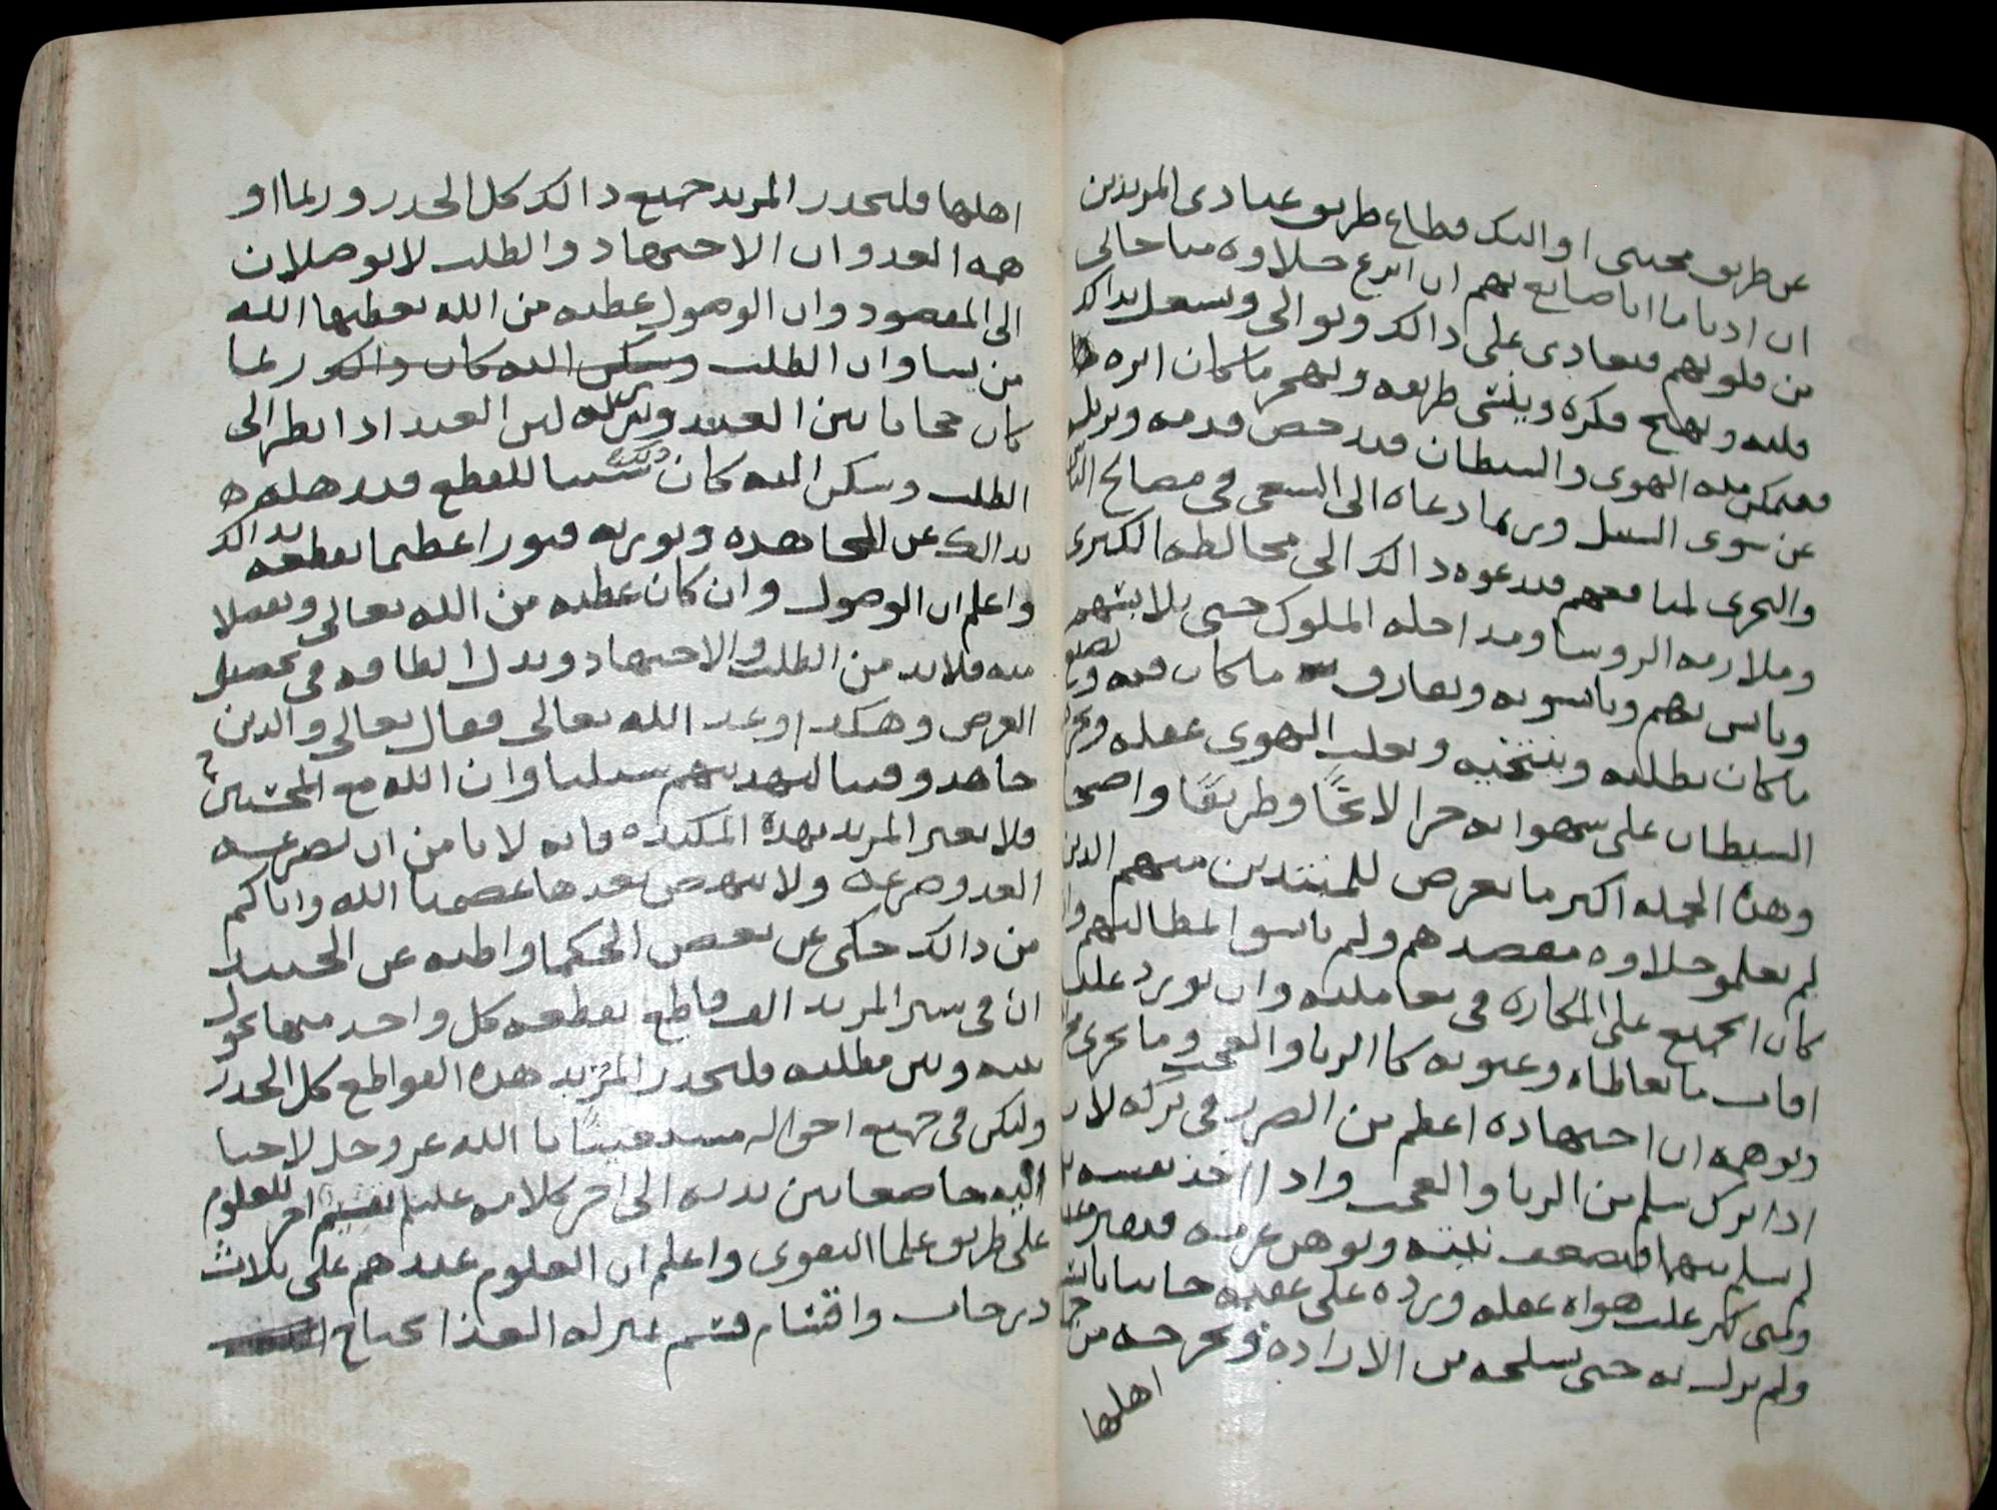 عن طريق محبتى اوالئك قطاع طريق عبادى المريدين
ان ادنا ما انا صانع بهم ان انزع حلاوه مناجاتى
من قلوبهم فتعادى على دالك وتوالى وتشعل بدالك
قلبه ويهيج فكره وينسى طريقه ويهجر ماكان اثره
فيتمكن منه الهوى والشيطان فيدحض قدمه ويزيل
عن سوى السبيل وربما دعاه الى السعى فى مصالح
والتحرى لمنافعهم فيدعوه دالك الى مخالطه الكبرى
وملازمه الروسا ومداخله الملوك حتى يلابسهم
ويانس بهم ويانسو به ويفارق ماكان فيه
ماكان يطلبه وينتحيه ويغلب الهوى عقله
الشيطان على شهواته جرا لايحًا وطريقًا واضحا
وهذه الجمله اكبر ما يعرض للمبتدين منهم الدين
لم يعلمو حلاوه مقصدهم ولم يانسوا لمطالبهم
كان الجميع على المكاره فى معاملته وان يورد عليه
افات ما يعاطاه وعيوبه كا الريا والعجب وما يجرى
ويوهمه ان اجتهاده اعظم من الضرر فى تركه لان
ادا ترك سلم من الريا والعجب وادا اخذ نفسه
لم يسلم منها فتضعف نيته ويوهن عزمه
ومتى كهر غلب هواه عقله ويرده على عقبه خايبا
ولم يزل به حتى يسلخه من الاراده ويخرجه من
اهلها
اهلها فليحدر المريد جميع دالك كل الحدر وربما او
همه العدو ان الاجتهاد والطلب لا يوصلان
الى المقصود وان الوصول عطيه من الله يعطيها الله
من يشا وان الطلب وسكن اليه كان دالك ربما
كان حجابا بين العبد وبين ربه لين العبد ادا نظر الى
الطلب وسكن اليه كان دلك سببا للقطع فيدهله
بدالك عن المجاهده ويوريه فتورا عظيما يقطعه بدالك
واعلم ان الوصول وان كان عطيه من الله تعالى وتفضلا
منه فلابد من الطلب والاجتهاد وبدل الطاقه فى تحصيل
الغرض وهكدا وعد الله تعالى فقال تعالى والدين
جاهدو فينا لنهدينهم سبلنا وان الله مع المحسنين
فلا يغتر المريد بهدة المكيده فانه لا يامن ان يصرعه
العدو صرعه ولا ينهض بعدها عصمنا الله واياكم
من دالك حكى عن بعض الحكما واظنه عن الجنيد
ان فى سير المريد الف قاطع يقطعه كل واحد منها يحول
بينه وبين مطلبه فليحدر المريد هده القواطع كل الحدر
وليكن فى جميع احواله مستعينًا با الله عز وجل لاجيا
اليه خاضعا بين يديه الى اخر كلامه عليم تقسيم اخر للعلوم
على طريق علما التقوى واعلم ان العلوم عندهم على ثلاث
درجات واقسام قسم بمنزله الغذا يحتاج